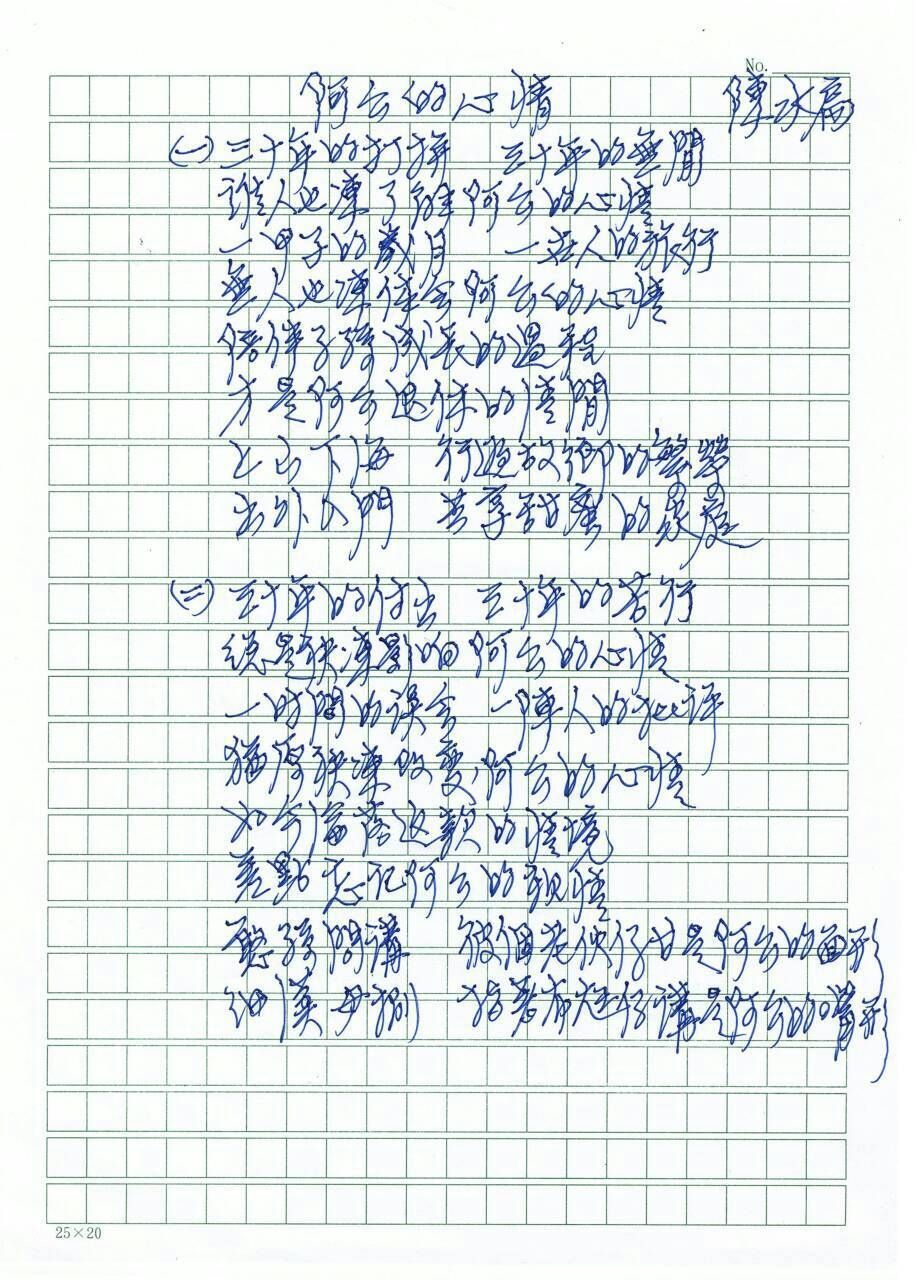 No.
阿公的心情 陳永富
(一) 三十年的打拼 三十年的無閒
誰人也凍了解阿公的心情
一甲子的歲月 一在人的旅行
無人也凍体会阿公的心情
陪伴子孫成長的過程
才是阿公退休的清閒
上山下海 行遊故鄉的繁榮
出外入門 共享甜蜜的家庭
(二) 三十年的付出 三十年的苦行
總是袂凍影响阿公的心情
一時間的误会 一陣人的批評
猶原袂凍改变阿公的心情
如今淪落这款的情境
差點忘記阿公的親情
憨孫問講 彼個老伙仔甘是阿公的面形
細漢毋捌 指著有大仔講是阿公的嘴形
25×20